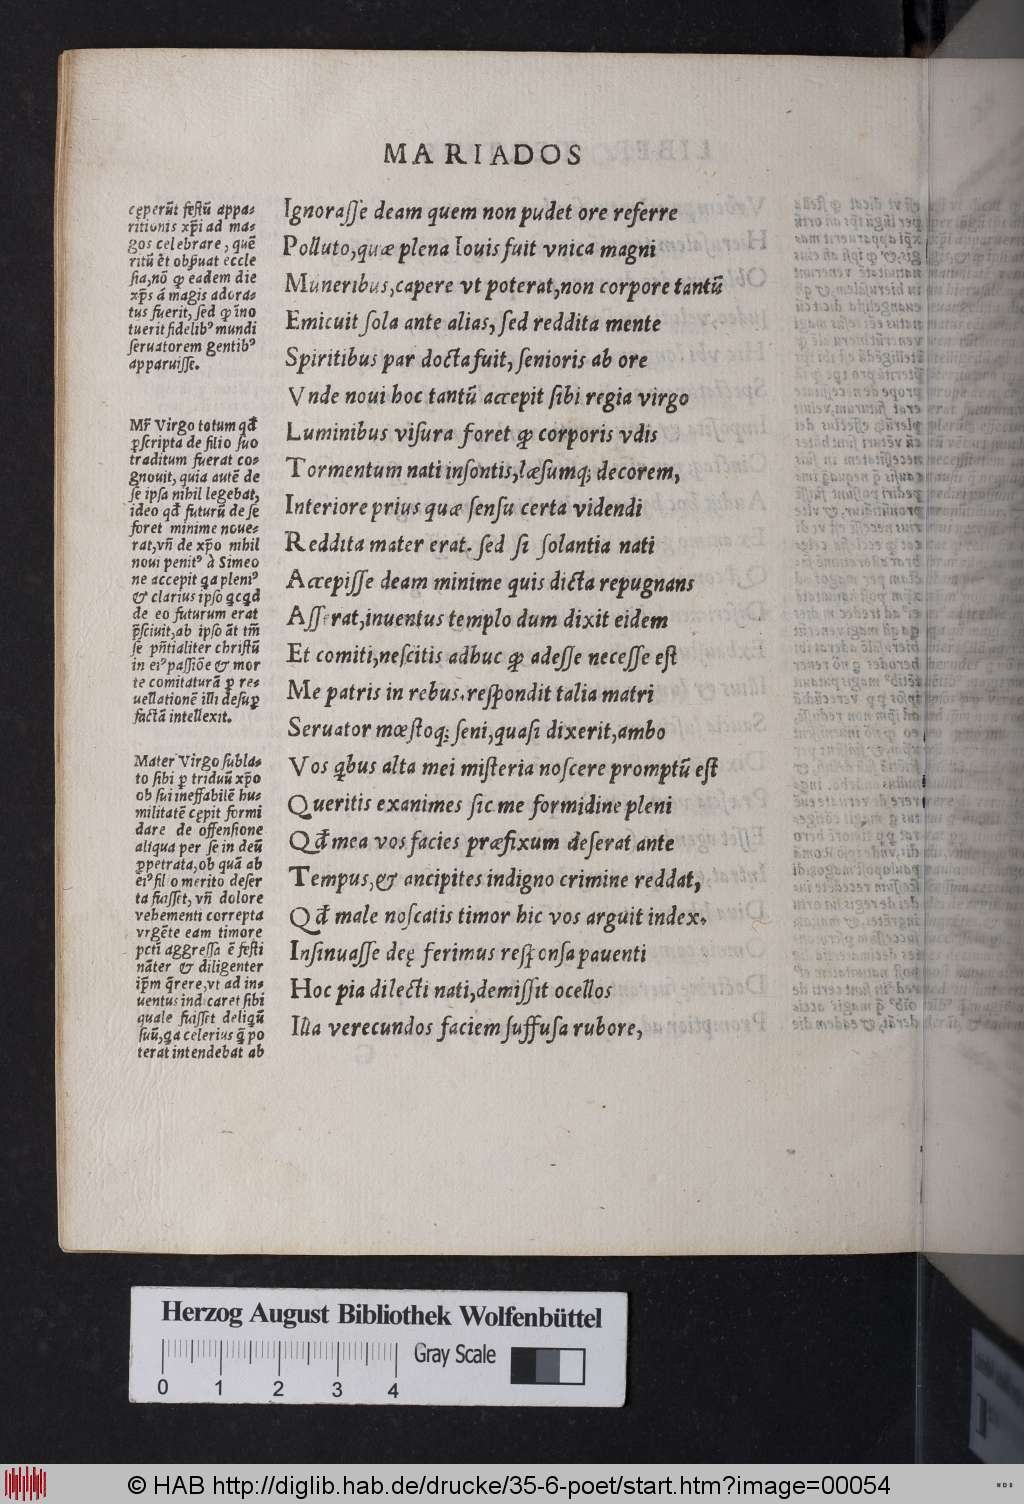 MARIADOS
cęperūt festū appa-
ritionis xp̄i ad ma-
gos celebrare, quē
ritū ēt obſuat eccle
ſia, nō ꝙ eadem die
xp̄s á magis adora-
tus fuerit, ſed ꝙ īno
tuerit fidelibꝰ mundi
ſeruatorem gentibꝰ
apparuiſſe.
Mr̄ Virgo totum qd̄
p̄ſcripta de filio ſuo
traditum fuerat co-
gnouit, quia autē de
ſe ipſa nihil legebat,
ideo qd̄ futurū de ſe
foret minime noue-
rat, vñ de xp̄o nihil
noui penitꝰ à Simeo
ne accepit qa pleniꝰ
& clarius ipſo qcqd
de eo futurum erat
p̄ſciuit, ab ipſo āt tm̄
ſe pñtialiter chriſtū
in eiꝰ paſſiōe & mor
te comitaturā ꝑ re-
uellationē illi deſuꝑ
factā intellexit.
Mater Virgo ſubla-
to ſibi ꝑ triduū xp̄o
ob ſui ineffabilē hu-
militatē cępit formi
dare de offenſione
aliqua per ſe in deū
ꝑpetrata, ob quā ab
eiꝰ filio merito deſer
ta fuiſſet, vñ dolore
vehementi correpta
vrgēte eam timore
pcti aggreſſa ē feſti
nāter & diligenter
ip̄m q̄rere, vt ad in-
uentus indicaret ſibi
quale fuiſſet deliqū
ſuū, qa celerius q̄ po
terat intendebat ab
Ignoraſſe deam quem non pudet ore referre
Polluto, quæ plena Iouis fuit vnica magni
Muneribus, capere vt poterat, non corpore tantū
Emicuit ſola ante alias, ſed reddita mente
Spiritibus par docta fuit, ſenioris ab ore
Vnde noui hoc tantū accepit ſibi regia virgo
Luminibus viſura foret ꝙ corporis vdis
Tormentum nati inſontis, læſumq; decorem,
Interiore prius quæ ſenſu certa videndi
Reddita mater erat. ſed ſi ſolantia nati
Accepiſſe deam minime quis dicta repugnans
Aſſerat, inuentus templo dum dixit eidem
Et comiti, neſcitis adhuc ꝙ adeſſe neceſſe eſt
Me patris in rebus. reſpondit talia matri
Seruator mœſtoq; ſeni, quaſi dixerit, ambo
Vos qbus alta mei miſteria noſcere promptū eſt
Queritis exanimes ſic me formidine pleni
Qd̄ mea vos facies præfixum deſerat ante
Tempus, & ancipites indigno crimine reddat,
Qd̄ male noſcatis timor hic vos arguit index.
Inſinuaſſe deę ferimus reſponſa pauenti
Hoc pia dilecti nati, demiſſit ocellos
Illa verecundos faciem ſuffuſa rubore,
Herzog August Bibliothek Wolfenbüttel
Gray Scale
0 1 2 3 4
© HAB http://diglib.hab.de/drucke/35-6-poet/start.htm?image=00054